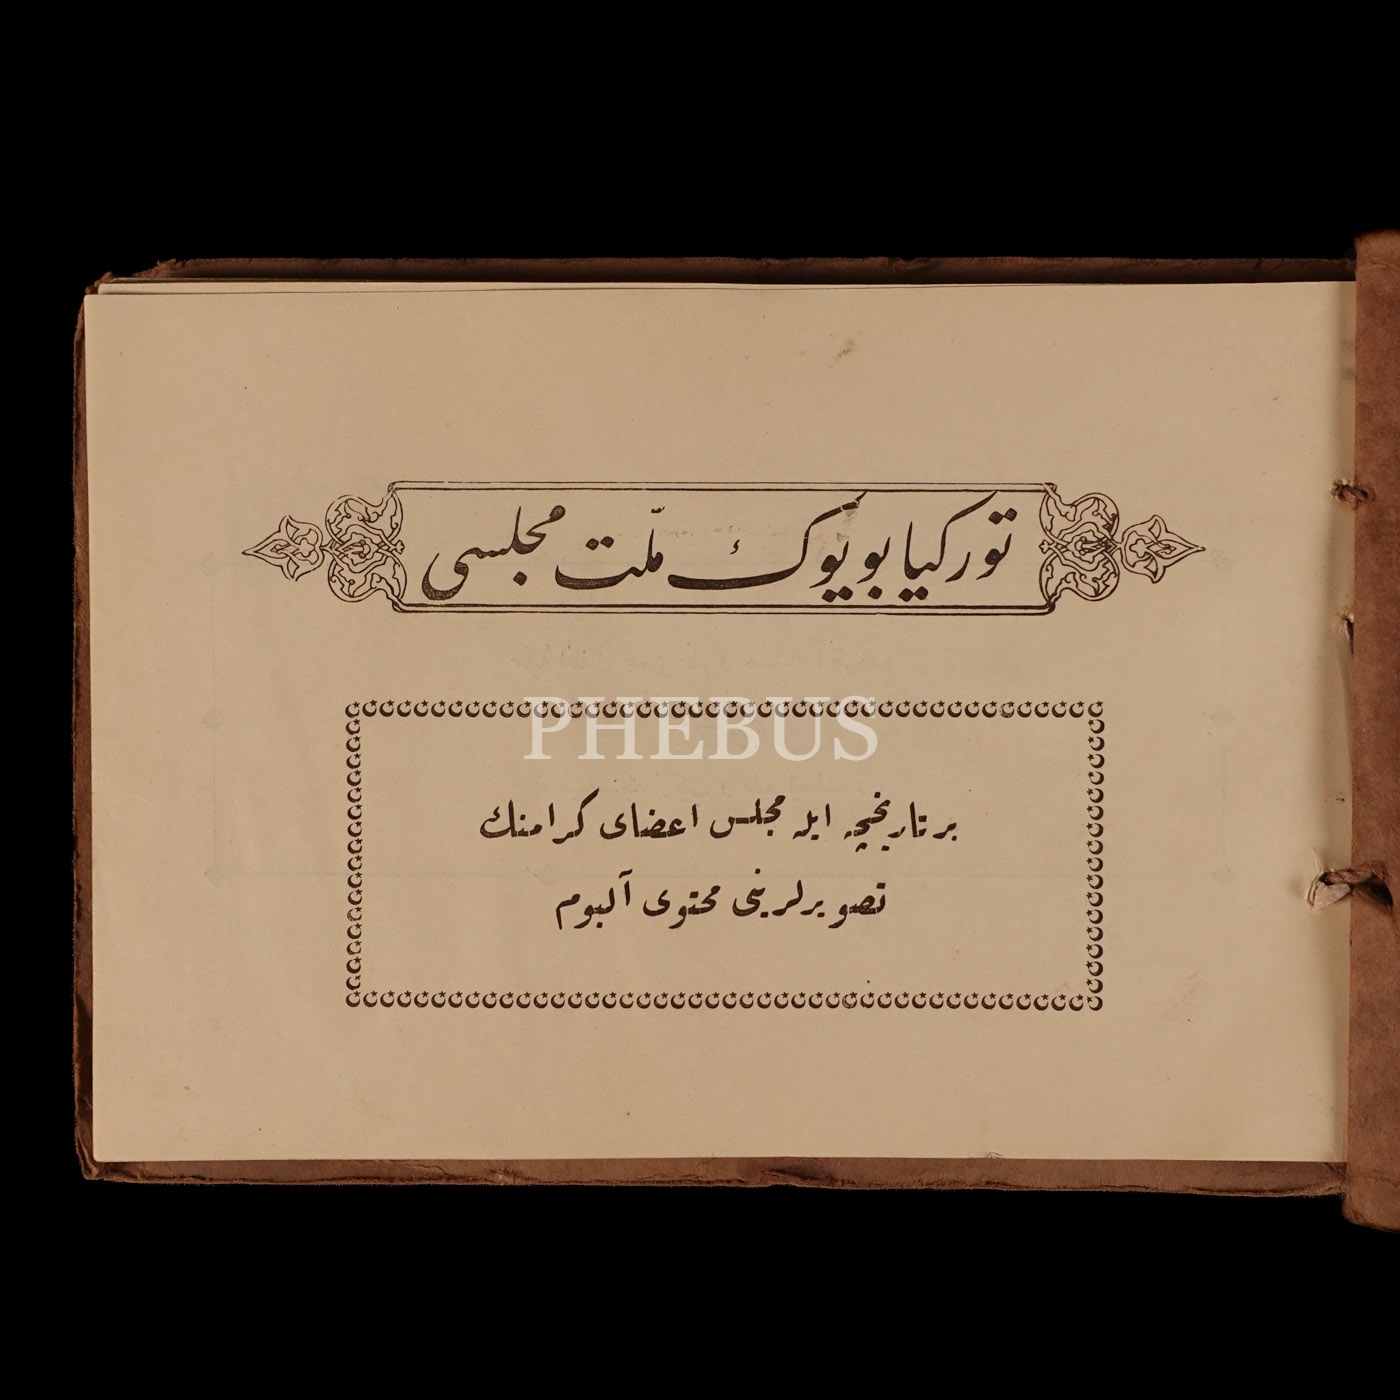 توركيا بويوك ملّت مجلسى
PHEBUS
بر تاريخچه ايله مجلس اعضاى كرامنك
تصويرلرينى محتوى آلبوم